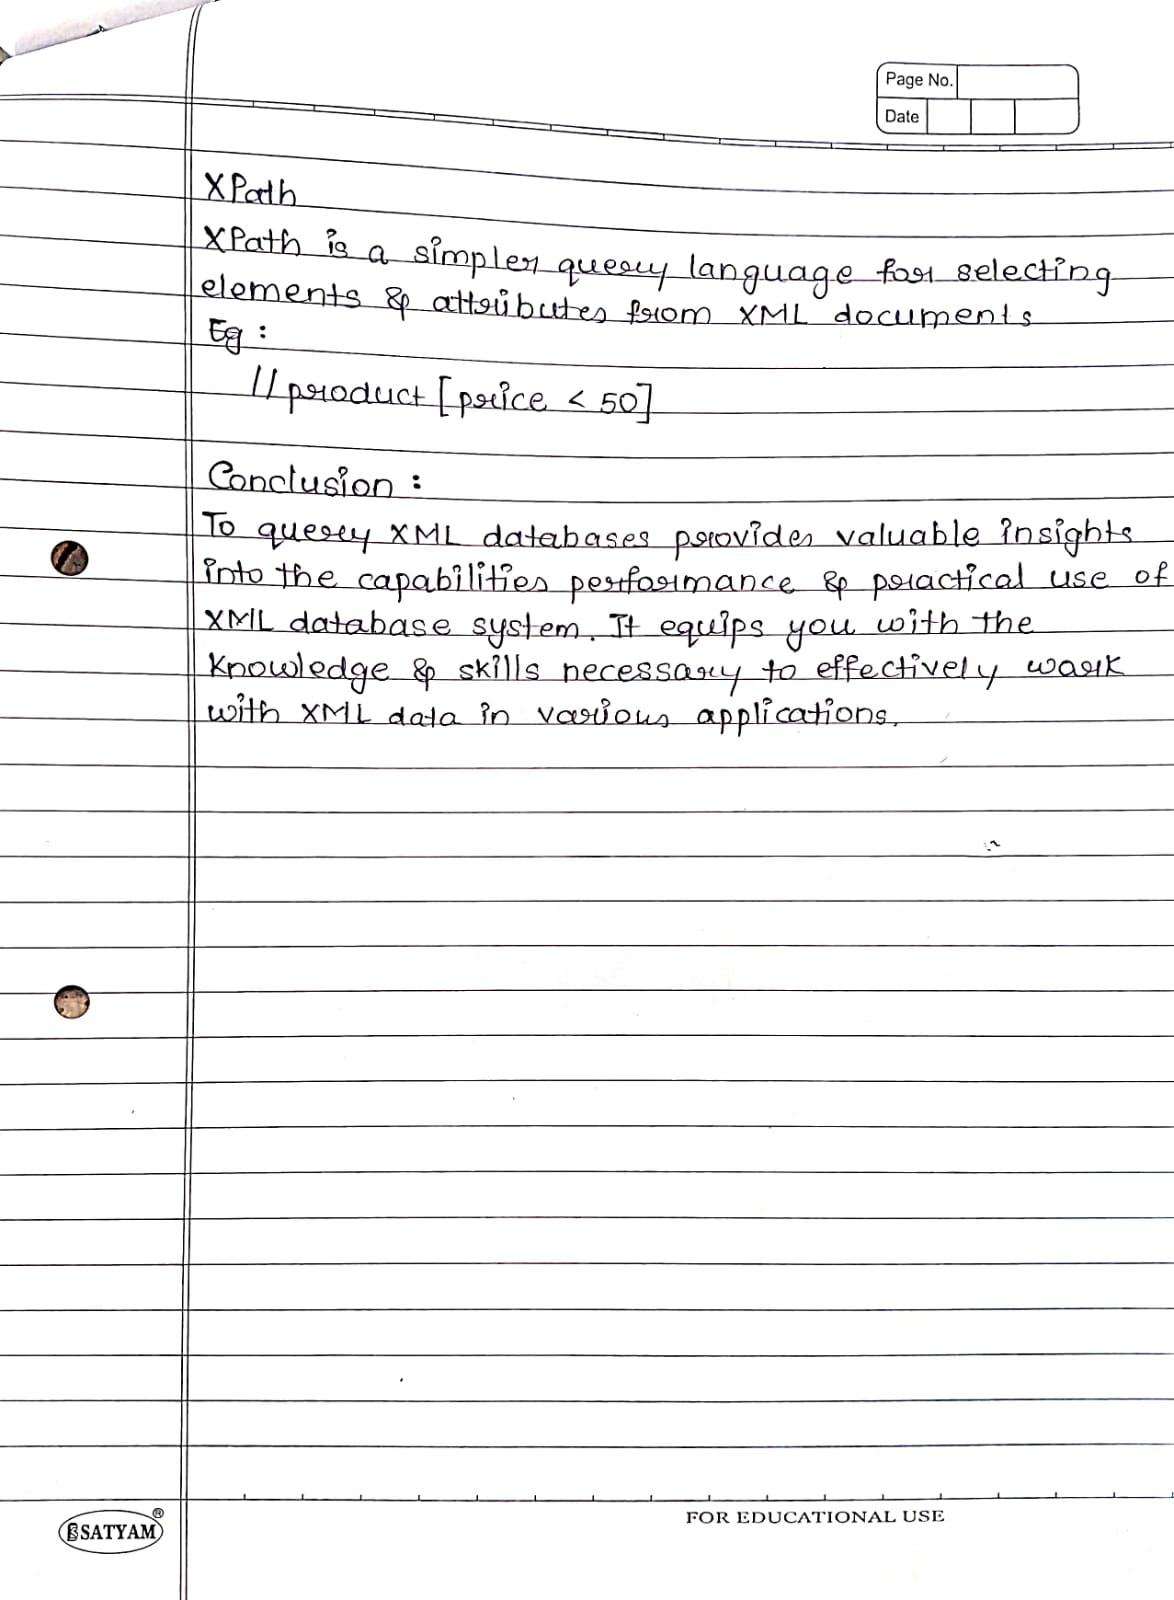 Page No.
Date
XPath
XPath is a simpler query language for selecting
elements & attributes from XML documents
Eg :
//product [price < 50]
Conclusion :
To query XML databases provides valuable insights
into the capabilities performance & practical use of
XML database system. It equips you with the
knowledge & skills necessary to effectively work
with XML data in various applications.
SATYAM®
FOR EDUCATIONAL USE